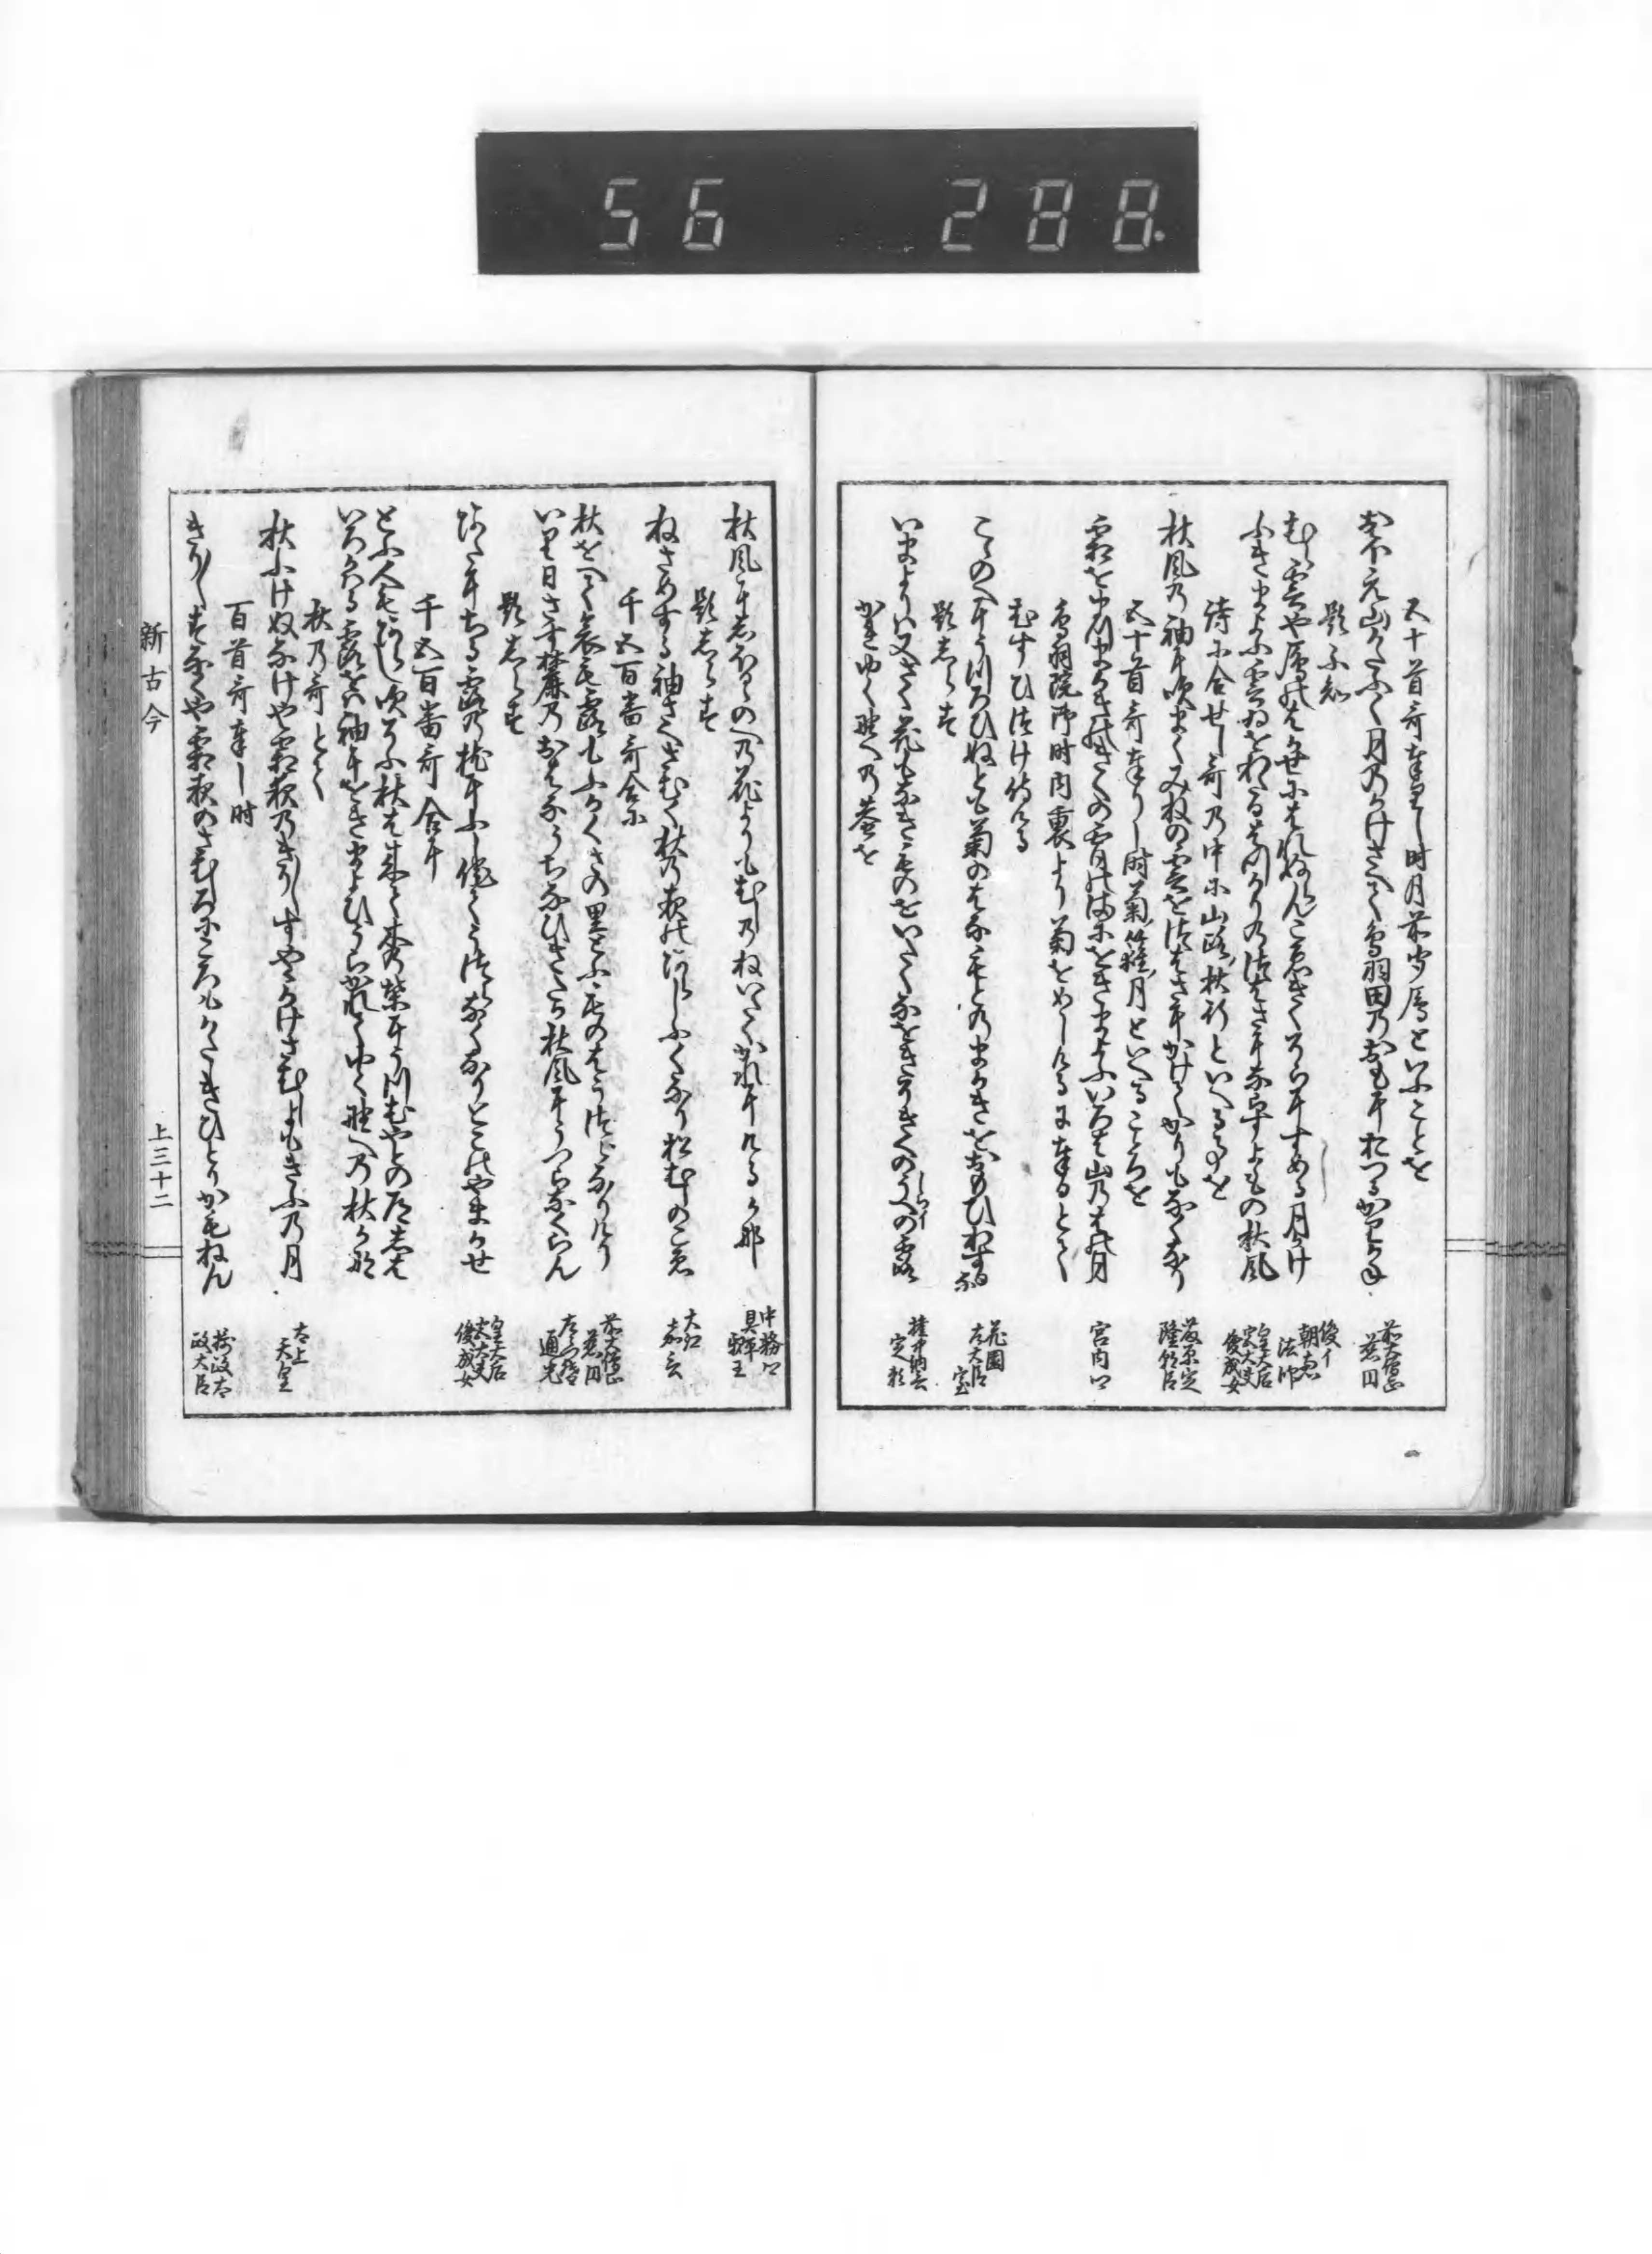 五十首哥奉りし時月前聞厂といふことを
おほえ山かたふく月のかけさえて鳥羽田のおもにおつるかりかね
前大僧正
慈円
題不知
むら雲や厂のは風にはれぬらんこゑきくそらにすめる月かけ
俊イ
朝恵
法師
ふきまよふ雲ゐをわたるはつかりのつはさにならすよもの秋風
皇太后
宮大夫
俊成女
詩に合せし哥の中に山路秋行といへる事を
秋風の袖に吹まくみねの雲をつはさにかけてかりもなくなり
五十首哥奉りし時菊籬月といへるこころを
霜をまつまかきのきくの宵のまにをきまよふいろは山のはの月
宮内卿
鳥羽院御時内裏より菊をめしけるに奉るとて
むすひつけ侍ける
ここのへにうつろひぬとも菊のはなもとのまかきをおもひわするな
花園
左大臣
室
題しらす
いまよりは又さく花もなきものをいたくなをきそきくのうへの露
権中納言
定頼
かれゆく野への
秋風にしほるるのへの花よりもむしのねいたくかれにけるか那
中務卿
具平
親王
題しらす
ねさめする袖さへさむく秋の夜のあらしふくなり松むしのこゑ
大江
嘉言
千五百番哥合に
秋をへてあはれも露もふかくさの里とふものはうつらなりけり
前大僧正
慈円
いり日さす麓のおはなうちなひきたか秋風にうつらなくらん
通光
題しらす
あたにちる露の枕にふし侘てうつらなくなりとこのやまかせ
皇太后
宮大夫
俊成女
千五百番哥合に
とふ人もあらし吹そふ秋はきて木の葉にうつむやとの道しは
いろかはる露をは袖にをきまよひうらかれてゆく野への秋かな
秋の哥とて
秋ふけぬなけや霜夜のきりきりすややかけさむしよもきふの月
太上
天皇
百首哥奉し時
きりきりすなくや霜夜のさむしろにころもかたしきひとりかもねん
摂政太
政大臣
新古今
上三十二
56 288.